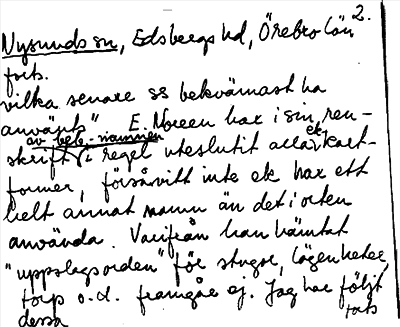 2.
Nysunds sn, Edsbergs hd, Örebro län
forts.
vilka senare ss bekvämast ha
använts" E. Noreen har i sin ren-
av bebe.-namnen
skrift i regel uteslutit alla ek. kart-
former, försåvitt inte ek har ett
helt annat namn än det i orten
använda. Varifrån han hämtat
"uppslagsorden" för stugor, lägenheter,
torp o.d. framgår ej. Jag har följt
dessa forts